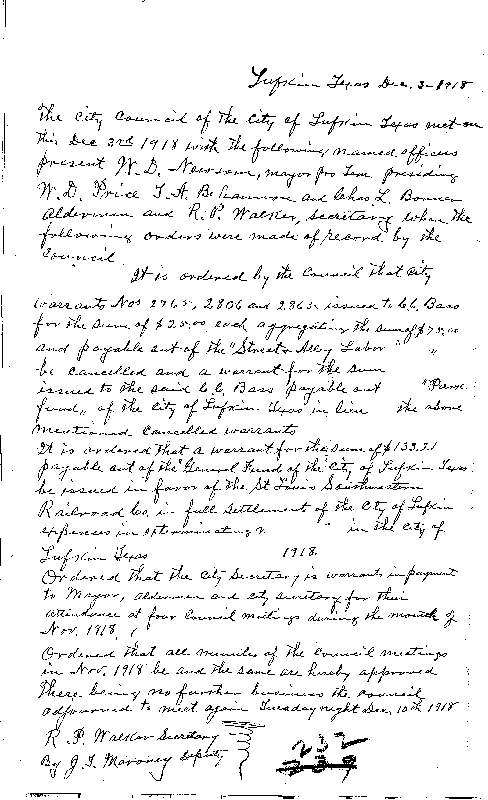 Lufkin Texas Dec. 3 - 1918
The City Council of the City of Lufkin Texas met on
this Dec 3rd 1918 with the following named officers
present W. D. Newsom, mayor pro tem presiding
W. D. Price T. A. Bohannon and Chas L. Bonner
Alderman and R. P. Walker, Secretary when the
following orders were made of record by the
Council
It is ordered by the Council that City
warrants Nos 2765, 2806 and 2863 issued to C. C. Bass
for the sum of $25.00 each aggregating the sum of $75.00
and payable out of the "Street & Alley Labor " "
be cancelled and a warrant for the sum
issued to the said C. C. Bass payable out "Pav
fund" of the City of Lufkin Texas in lieu the above
mentioned cancelled warrants
It is ordered that a warrant for the sum of $133.71
payable out of the "General Fund of the City of Lufkin Texas
be issued in favor of the St Louis Southwestern
Railroad Co. in full settlement of the City of Lufkin
expenses in exterminating " in the City of
Lufkin Texas 1918.
Ordered that the City Secretary is warrants in payment
to Mayor, alderman and city secretary for their
attendance at four Council meetings during the month of
Nov. 1918
Ordered that all minutes of the Council meetings
in Nov. 1918 be and the same are hereby approved
There being no further business the council
adjourned to meet again Tuesday night Dec. 10th 1918
R. P. Walker Secretary
By J. T. Maroney Deputy
232
239